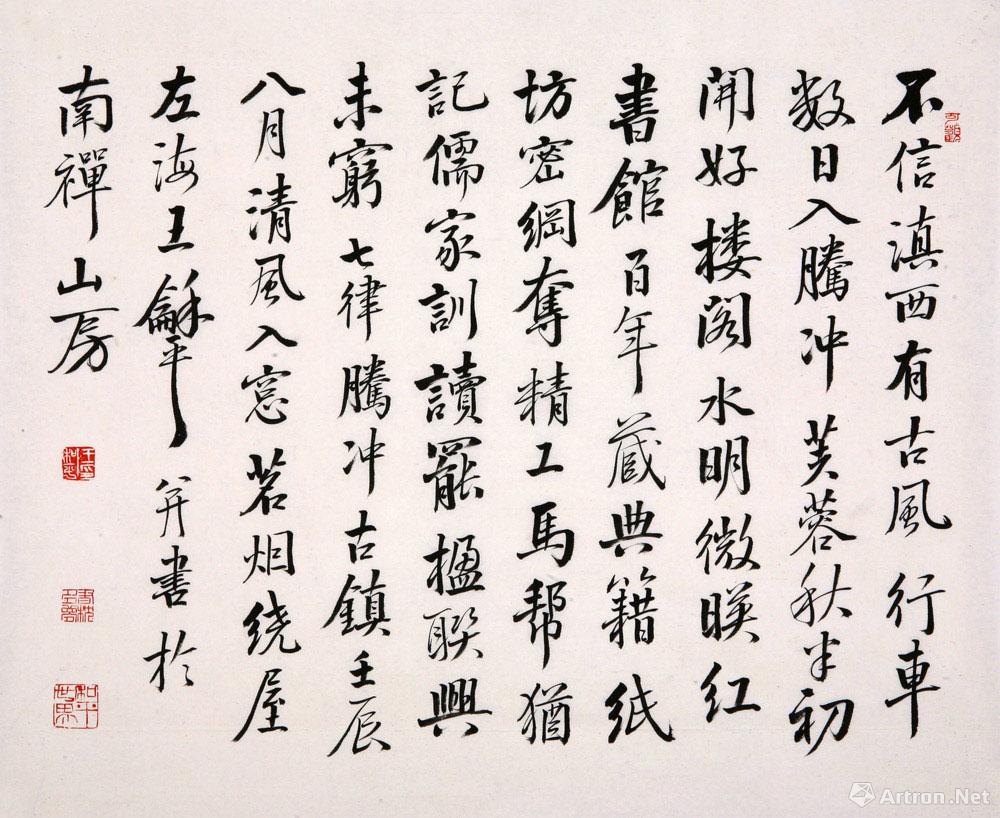 不信滇西有古風行車
数日入騰冲芙蓉秋半初
開好楼阁水明微暎红
書館百年蔵典籍紙
坊密綱奪精工馬帮猶
記儒家訓讀罷楹聯興
未窮七律騰冲古鎮壬辰
八月清風入窓茗烟绕屋
左海王龢平并書於
南禪山房
Artron.Net